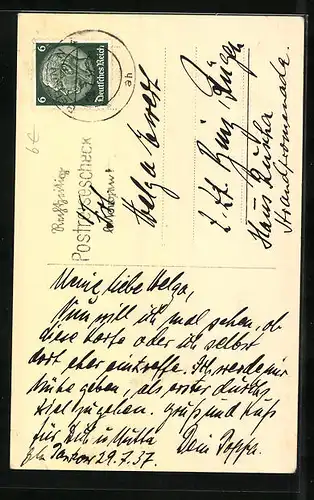 6 Deutsches Reich 6
6 €
Postreisescheck
Helga Evert
z. Zt. Binz / Rügen
Haus Luther
Strandpromenade.
Meine liebe Helga,
Nun will ich mal sehen, ob
diese Karte oder ich selbst
dort eher eintreffe. Ich werde mir
Mühe geben, als erster durchs
Ziel zu gehen. Gruß und Kuß
für Dich u. Mutti
Dein
29.7.37.